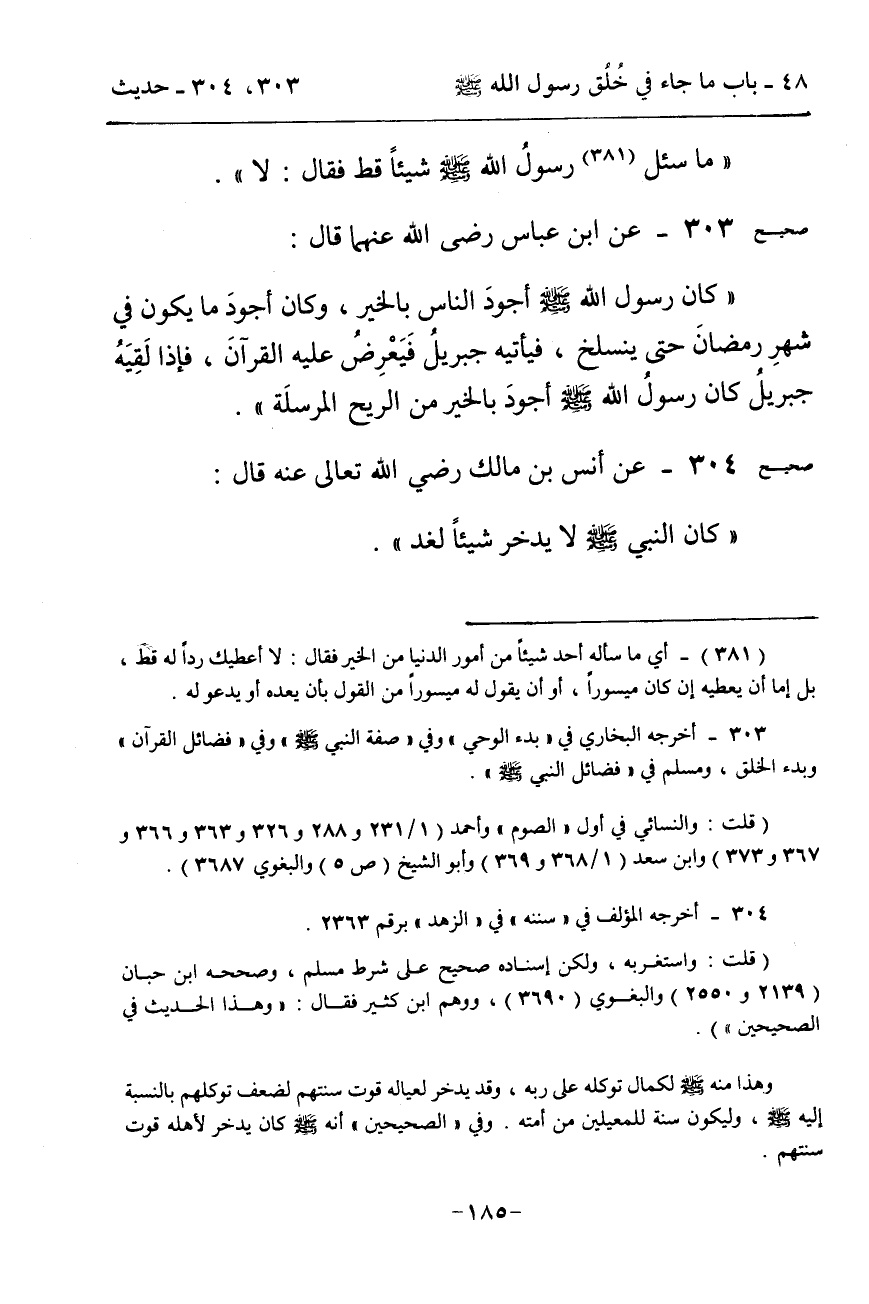 ٤٨ ـ باب ما جاء في خُلُق رسول الله ﷺ ٣٠٣، ٣٠٤ ـ حديث
« ما سئل (٣٨١) رسولُ الله ﷺ شيئاً قط فقال : لا » .
صحيح ٣٠٣ ـ عن ابن عباس رضى الله عنهما قال :
« كان رسول الله ﷺ أجودَ الناس بالخير ، وكان أجودَ ما يكون في
شهرِ رمضانَ حتى ينسلخ ، فيأتيه جبريلُ فَيَعْرِضُ عليه القرآنَ ، فإذا لَقِيَهُ
جبريلُ كان رسولُ الله ﷺ أجودَ بالخير من الريح المرسلَة » .
صحيح ٣٠٤ ـ عن أنس بن مالك رضي الله تعالى عنه قال :
« كان النبي ﷺ لا يدخر شيئاً لغد » .
( ٣٨١ ) ـ أي ما سأله أحد شيئاً من أمور الدنيا من الخير فقال : لا أعطيك رداً له قطّ ،
بل إما أن يعطيه إن كان ميسوراً ، أو أن يقول له ميسوراً من القول بأن يعده أو يدعو له .
٣٠٣ ـ أخرجه البخاري في « بدء الوحي » وفي « صفة النبي ﷺ » وفي « فضائل القرآن »
وبدء الخلق ، ومسلم في « فضائل النبي ﷺ » .
( قلت : والنسائي في أول « الصوم » وأحمد ( ١/ ٢٣١ و ٢٨٨ و ٣٢٦ و ٣٦٣ و ٣٦٦ و
٣٦٧ و ٣٧٣ ) وابن سعد ( ١/ ٣٦٨ و ٣٦٩ ) وأبو الشيخ ( ص ٥ ) والبغوي ٣٦٨٧ ) .
٣٠٤ ـ أخرجه المؤلف في « سننه » في « الزهد » برقم ٢٣٦٣ .
( قلت : واستغربه ، ولكن إسناده صحيح على شرط مسلم ، وصححه ابن حبان
( ٢١٣٩ و ٢٥٥٠ ) والبغوي ( ٣٦٩٠ ) ، ووهم ابن كثير فقال : « وهذا الحديث في
الصحيحين » ) .
وهذا منه ﷺ لكمال توكله على ربه ، وقد يدخر لعياله قوت سنتهم لضعف توكلهم بالنسبة
إليه ﷺ ، وليكون سنة للمعيلين من أمته . وفي « الصحيحين » أنه ﷺ كان يدخر لأهله قوت
سنتهم .
-١٨٥-